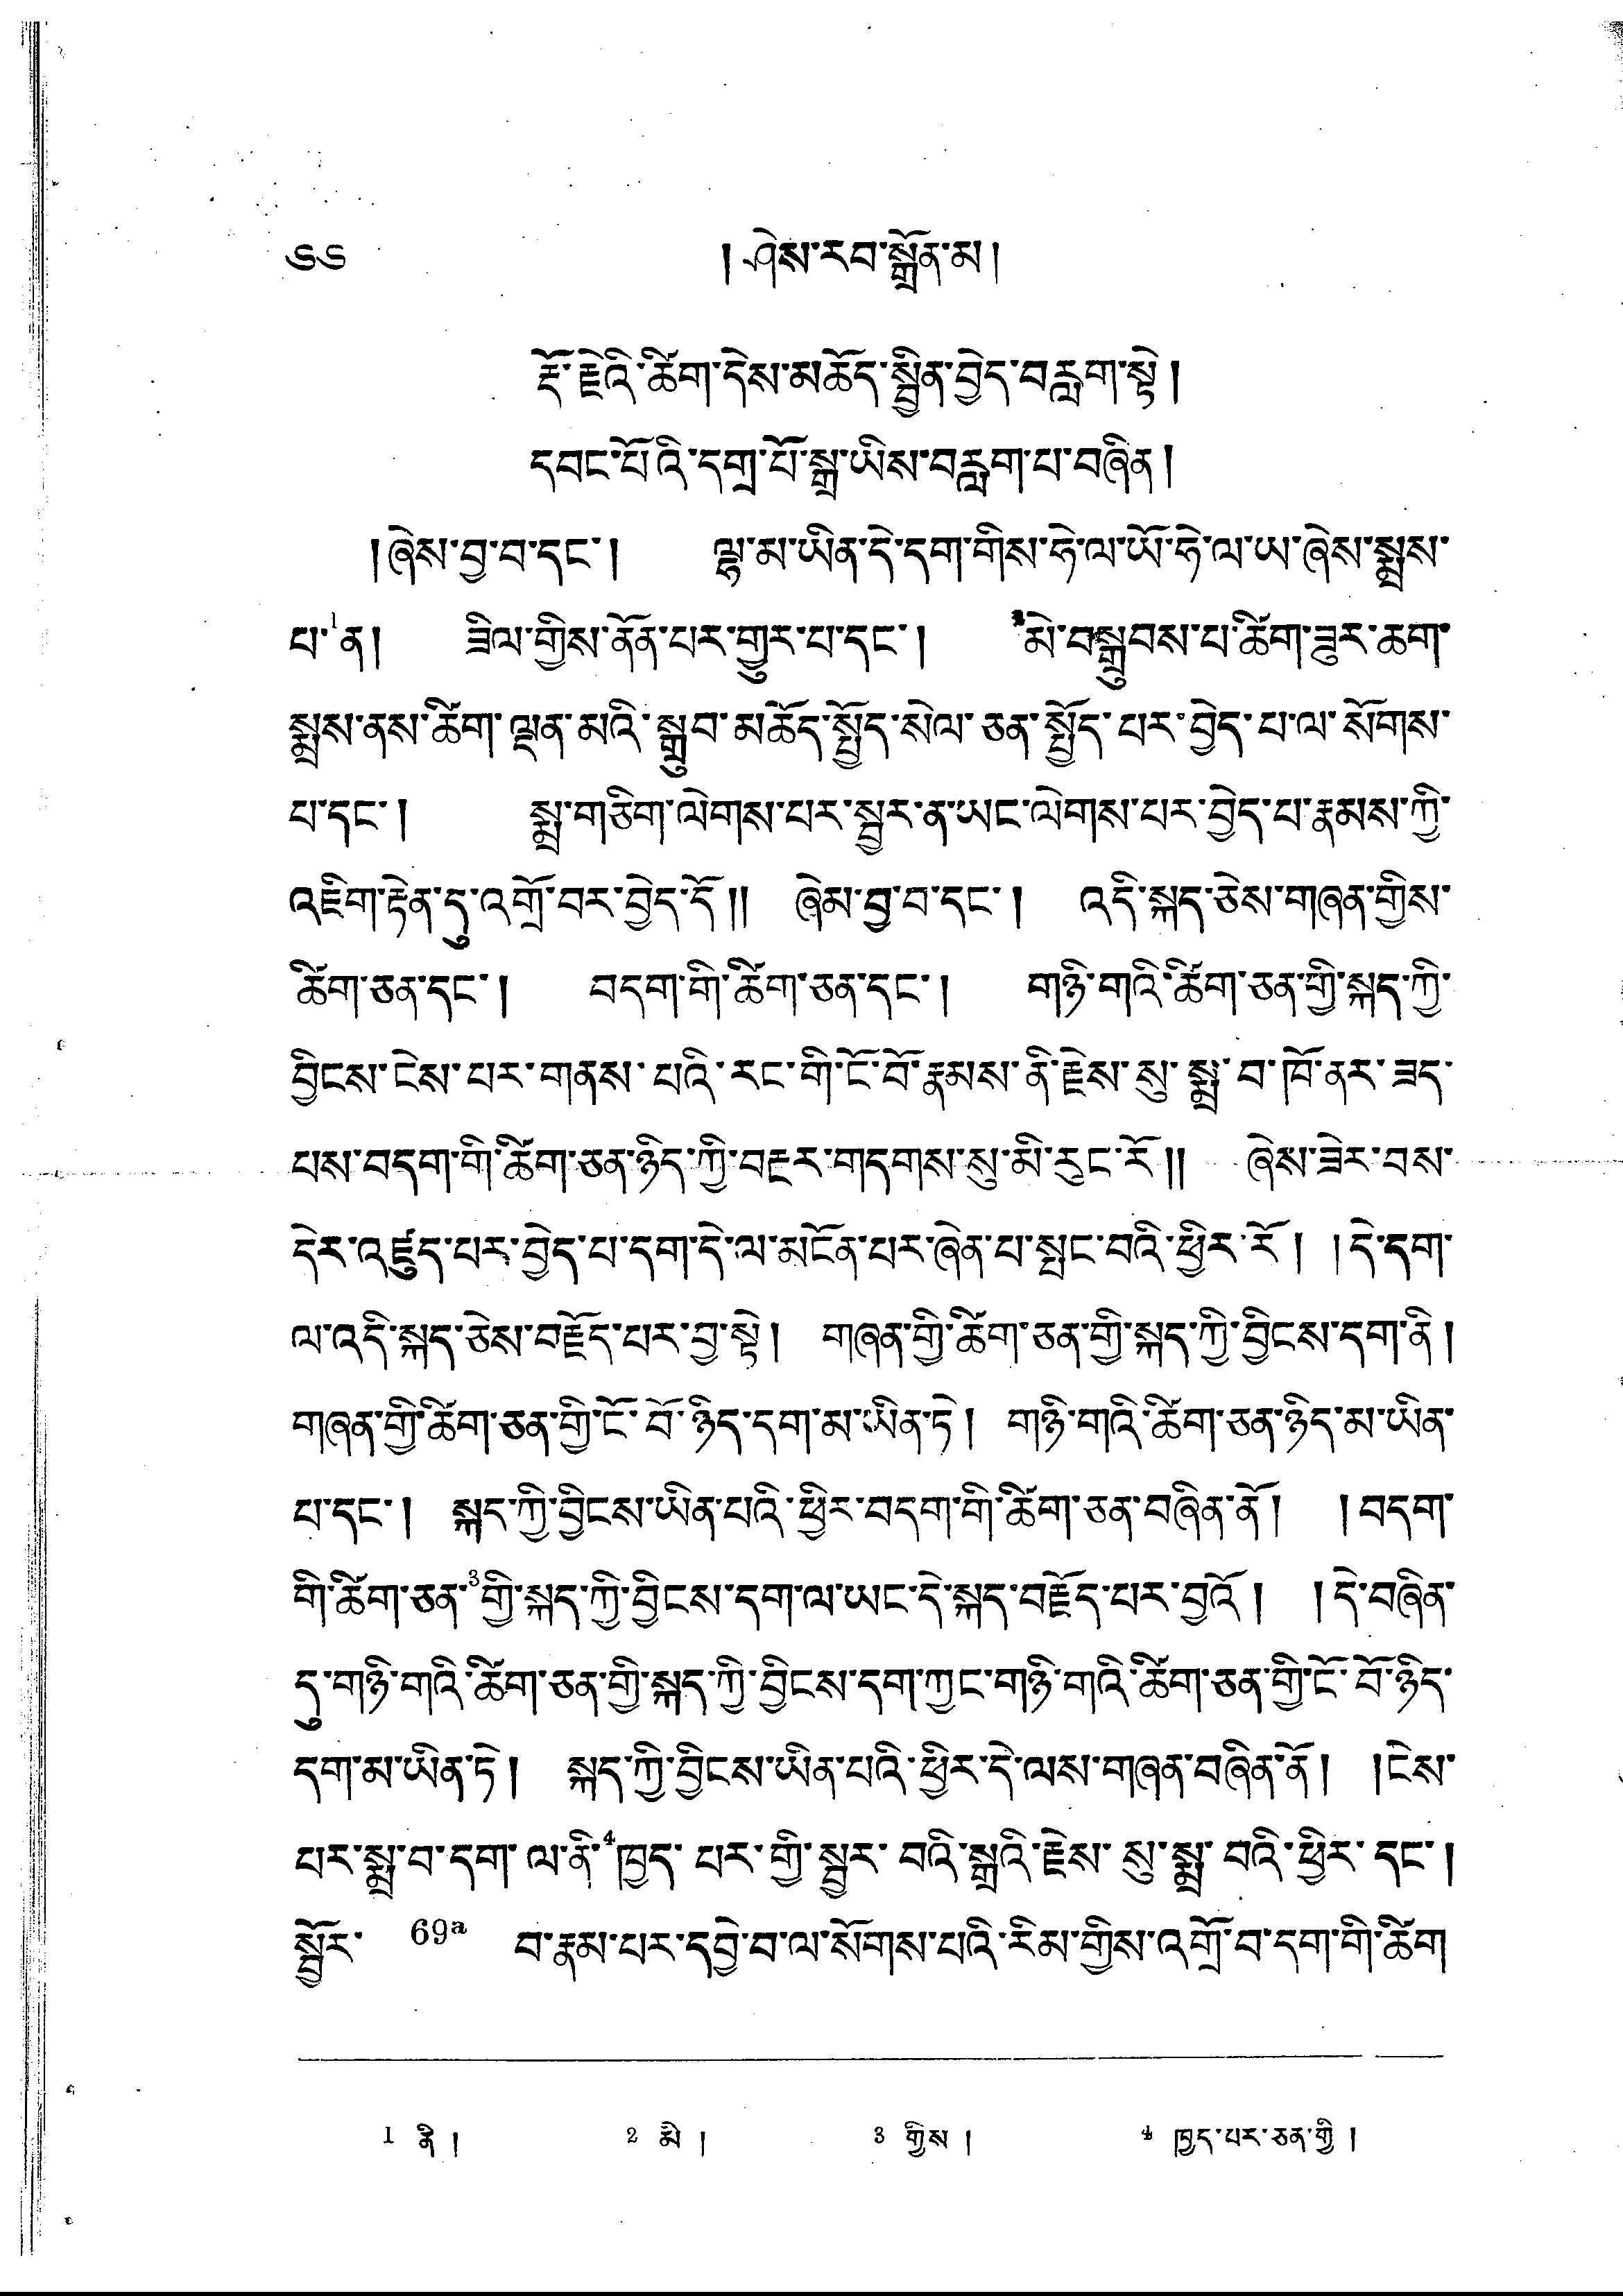 ༦༦ །ཤེས་རབ་སྒྲོན་མ།
རྡོ་རྗེའི་ཚིག་དེས་མཆོད་སྦྱིན་བྱེད་བརླག་སྟེ།
དབང་པོའི་དགྲ་པོ་སྒྲ་ཡིས་བརླག་པ་བཞིན།
།ཞེས་བྱ་བ་དང་། ལྷ་མ་ཡིན་དེ་དག་གིས་ཧེ་ལ་ཡོ་ཧེ་ལ་ཡ་ཞེས་སྨྲས་
པ་¹ན། ཟིལ་གྱིས་ནོན་པར་གྱུར་པ་དང་། ²མི་བསྒྲུབས་པ་ཚིག་ཟུར་ཆག་
སྨྲས་ནས་ཚིག་ལྡན་མའི་སྒྲུབ་མཆོད་སྤྱོད་སེལ་ཅན་སྤྱོད་པར་བྱེད་པ་ལ་སོགས་
པ་དང་། སྨྲ་གཅིག་ལེགས་པར་སྦྱར་ན་ཡང་ལེགས་པར་བྱེད་པ་རྣམས་ཀྱི་
འཇིག་རྟེན་དུ་འགྲོ་བར་བྱེད་དོ།། ཞེམ་བྱ་བ་དང་། འདི་སྐད་ཅེས་གཞན་གྱིས་
ཚིག་ཅན་དང་། བདག་གི་ཚིག་ཅན་དང་། གཉི་གའི་ཚིག་ཅན་གྱི་སྐད་ཀྱི་
བྱིངས་ངེས་པར་གནས་པའི་རང་གི་ངོ་བོ་རྣམས་ནི་རྗེས་སུ་སྨྲ་བ་ཁོ་ནར་ཟད་
པས་བདག་གི་ཚིག་ཅན་ཉིད་ཀྱི་བརྡར་གདགས་སུ་མི་རུང་རོ།། ཞེས་ཟེར་བས་
དེར་འཛུད་པར་བྱེད་པ་དག་དེ་ལ་མངོན་པར་ཞེན་པ་སྤང་བའི་ཕྱིར་རོ། །དེ་དག་
ལ་འདི་སྐད་ཅེས་བརྗོད་པར་བྱ་སྟེ། གཞན་གྱི་ཚིག་ཅན་གྱི་སྐད་ཀྱི་བྱིངས་དག་ནི།
གཞན་གྱི་ཚིག་ཅན་གྱི་ངོ་བོ་ཉིད་དག་མ་ཡིན་ཏེ། གཉི་གའི་ཚིག་ཅན་ཉིད་མ་ཡིན་
པ་དང་། སྐད་ཀྱི་བྱིངས་ཡིན་པའི་ཕྱིར་བདག་གི་ཚིག་ཅན་བཞིན་ནོ། །བདག་
གི་ཚིག་ཅན་³གྱི་སྐད་ཀྱི་བྱིངས་དག་ལ་ཡང་དེ་སྐད་བརྗོད་པར་བྱའོ། །དེ་བཞིན་
དུ་གཉི་གའི་ཚིག་ཅན་གྱི་སྐད་ཀྱི་བྱིངས་དག་ཀྱང་གཉི་གའི་ཚིག་ཅན་གྱི་ངོ་བོ་ཉིད་
དག་མ་ཡིན་ཏེ། སྐད་ཀྱི་བྱིངས་ཡིན་པའི་ཕྱིར་དེ་ལས་གཞན་བཞིན་ནོ། །ངེས་
པར་སྨྲ་བ་དག་ལ་ནི་⁴ཁྱད་པར་གྱི་སྦྱར་བའི་སྒྲའི་རྗེས་སུ་སྨྲ་བའི་ཕྱིར་དང་།
སྦྱོར་ 69ᵃ བ་རྣམ་པར་དབྱེ་བ་ལ་སོགས་པའི་རིམ་གྱིས་འགྲོ་བ་དག་གི་ཚིག
1 ནི། 2 མི། 3 གྱིས། 4 ཁྱད་པར་ཅན་གྱི།